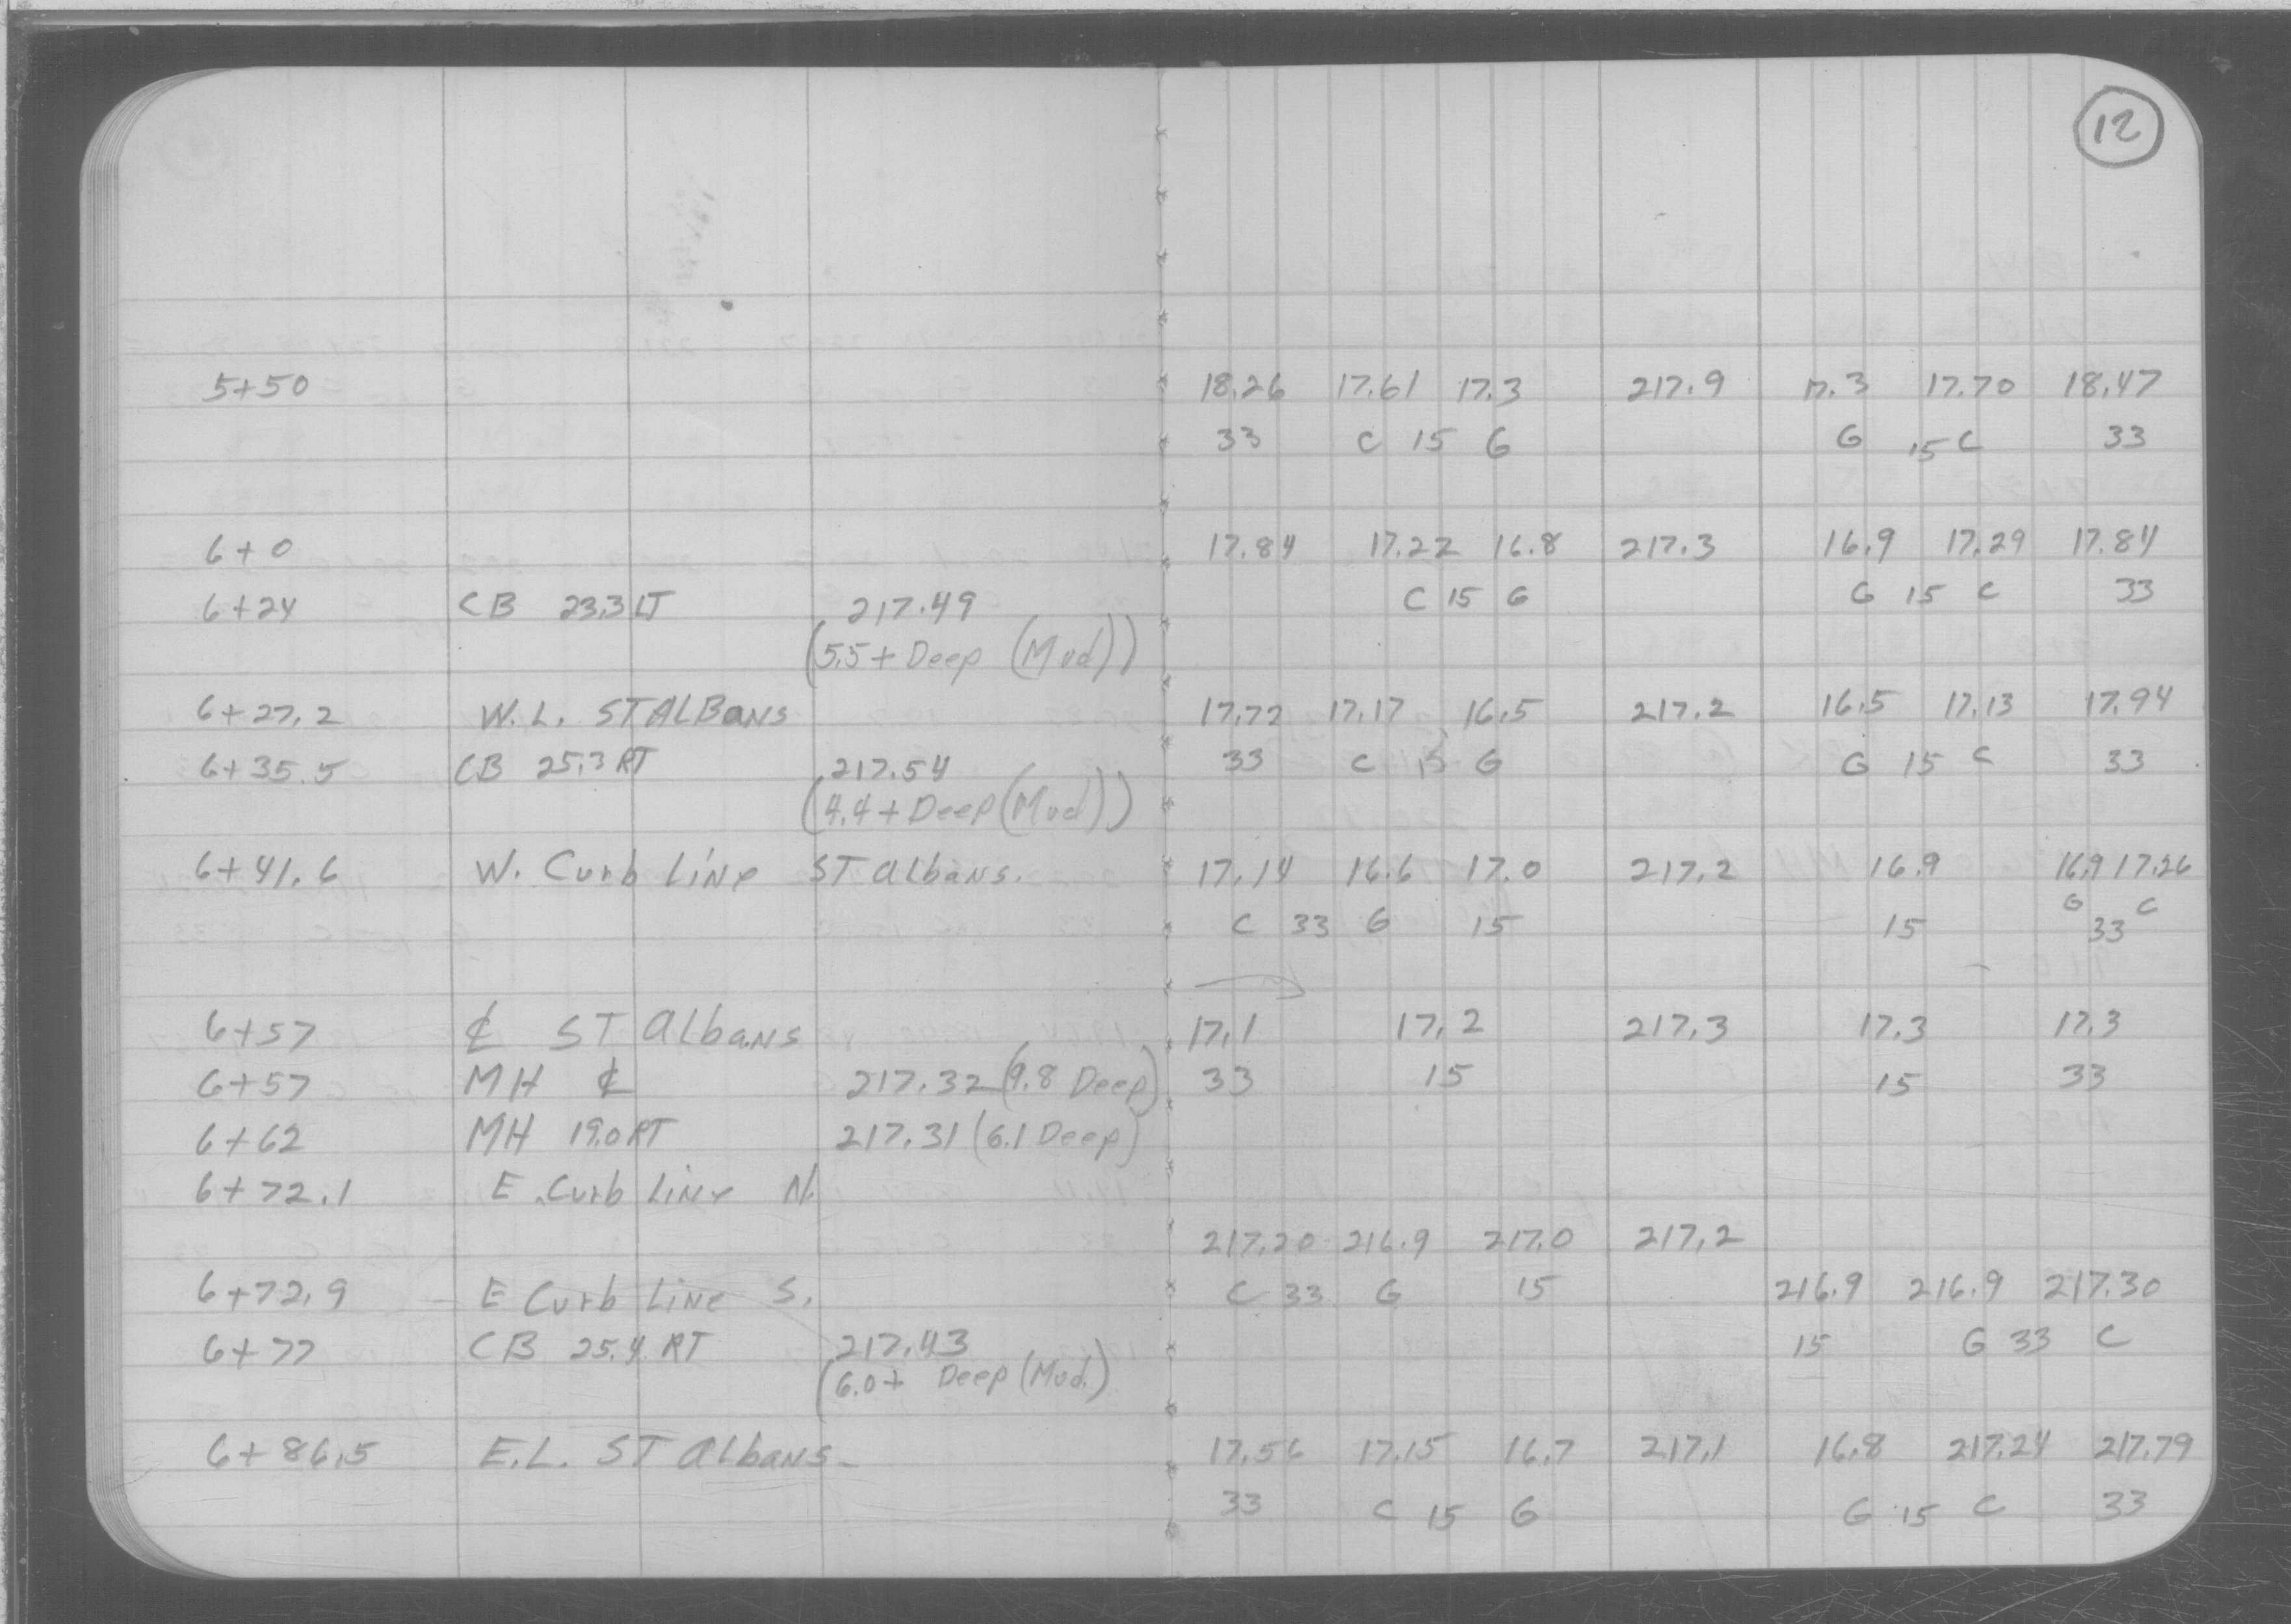 12
5+50 18.26 17.61 17.3 217.9 17.3 17.70 18.47
33 C 15 G G 15 C 33
6+0 17.84 17.22 16.8 217.3 16.9 17.29 17.84
6+24 CB 23.3 LT 217.49 C 15 G G 15 C 33
(5.5+ Deep (Mud))
6+27.2 W.L. ST ALBANS 17.72 17.17 16.5 217.2 16.5 17.13 17.94
6+35.5 CB 25.3 RT 217.54 33 C 15 G G 15 C 33
(4.4+ Deep (Mud))
6+41.6 W. Curb Line ST Albans. 17.14 16.6 17.0 217.2 16.9 16.9 17.26
C 33 G 15 15 G 33 C
6+57 ℄ ST Albans 17.1 17.2 217.3 17.3 17.3
6+57 MH ℄ 217.32 (9.8 Deep) 33 15 15 33
6+62 MH 19.0 RT 217.31 (6.1 Deep)
6+72.1 E. Curb Line N.
217.20 216.9 217.0 217.2
6+72.9 E Curb Line S. C 33 G 15 216.9 216.9 217.30
6+77 CB 25.4 RT 217.43 15 G 33 C
(6.0+ Deep (Mud.)
6+86.5 E.L. ST Albans 17.56 17.15 16.7 217.1 16.8 217.24 217.79
33 C 15 G G 15 C 33